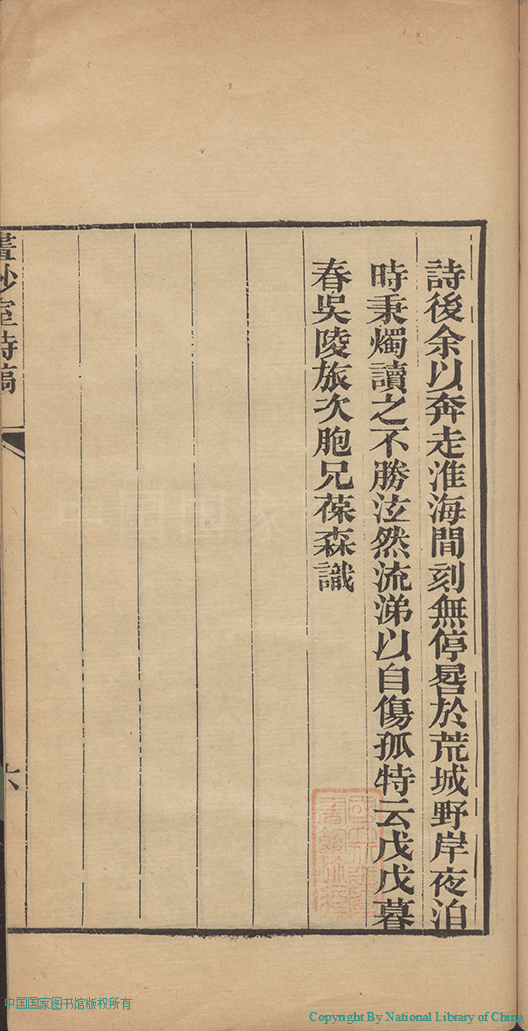 詩後余以奔走淮海間刻無停晷於荒城野岸夜泊
時秉燭讀之不勝泫然流涕以自傷孤特云戊戌暮
春吳陵旅次胞兄葆森識
畫妙室詩稿
六
中国国家图书馆版权所有
Copyright By National Library of China